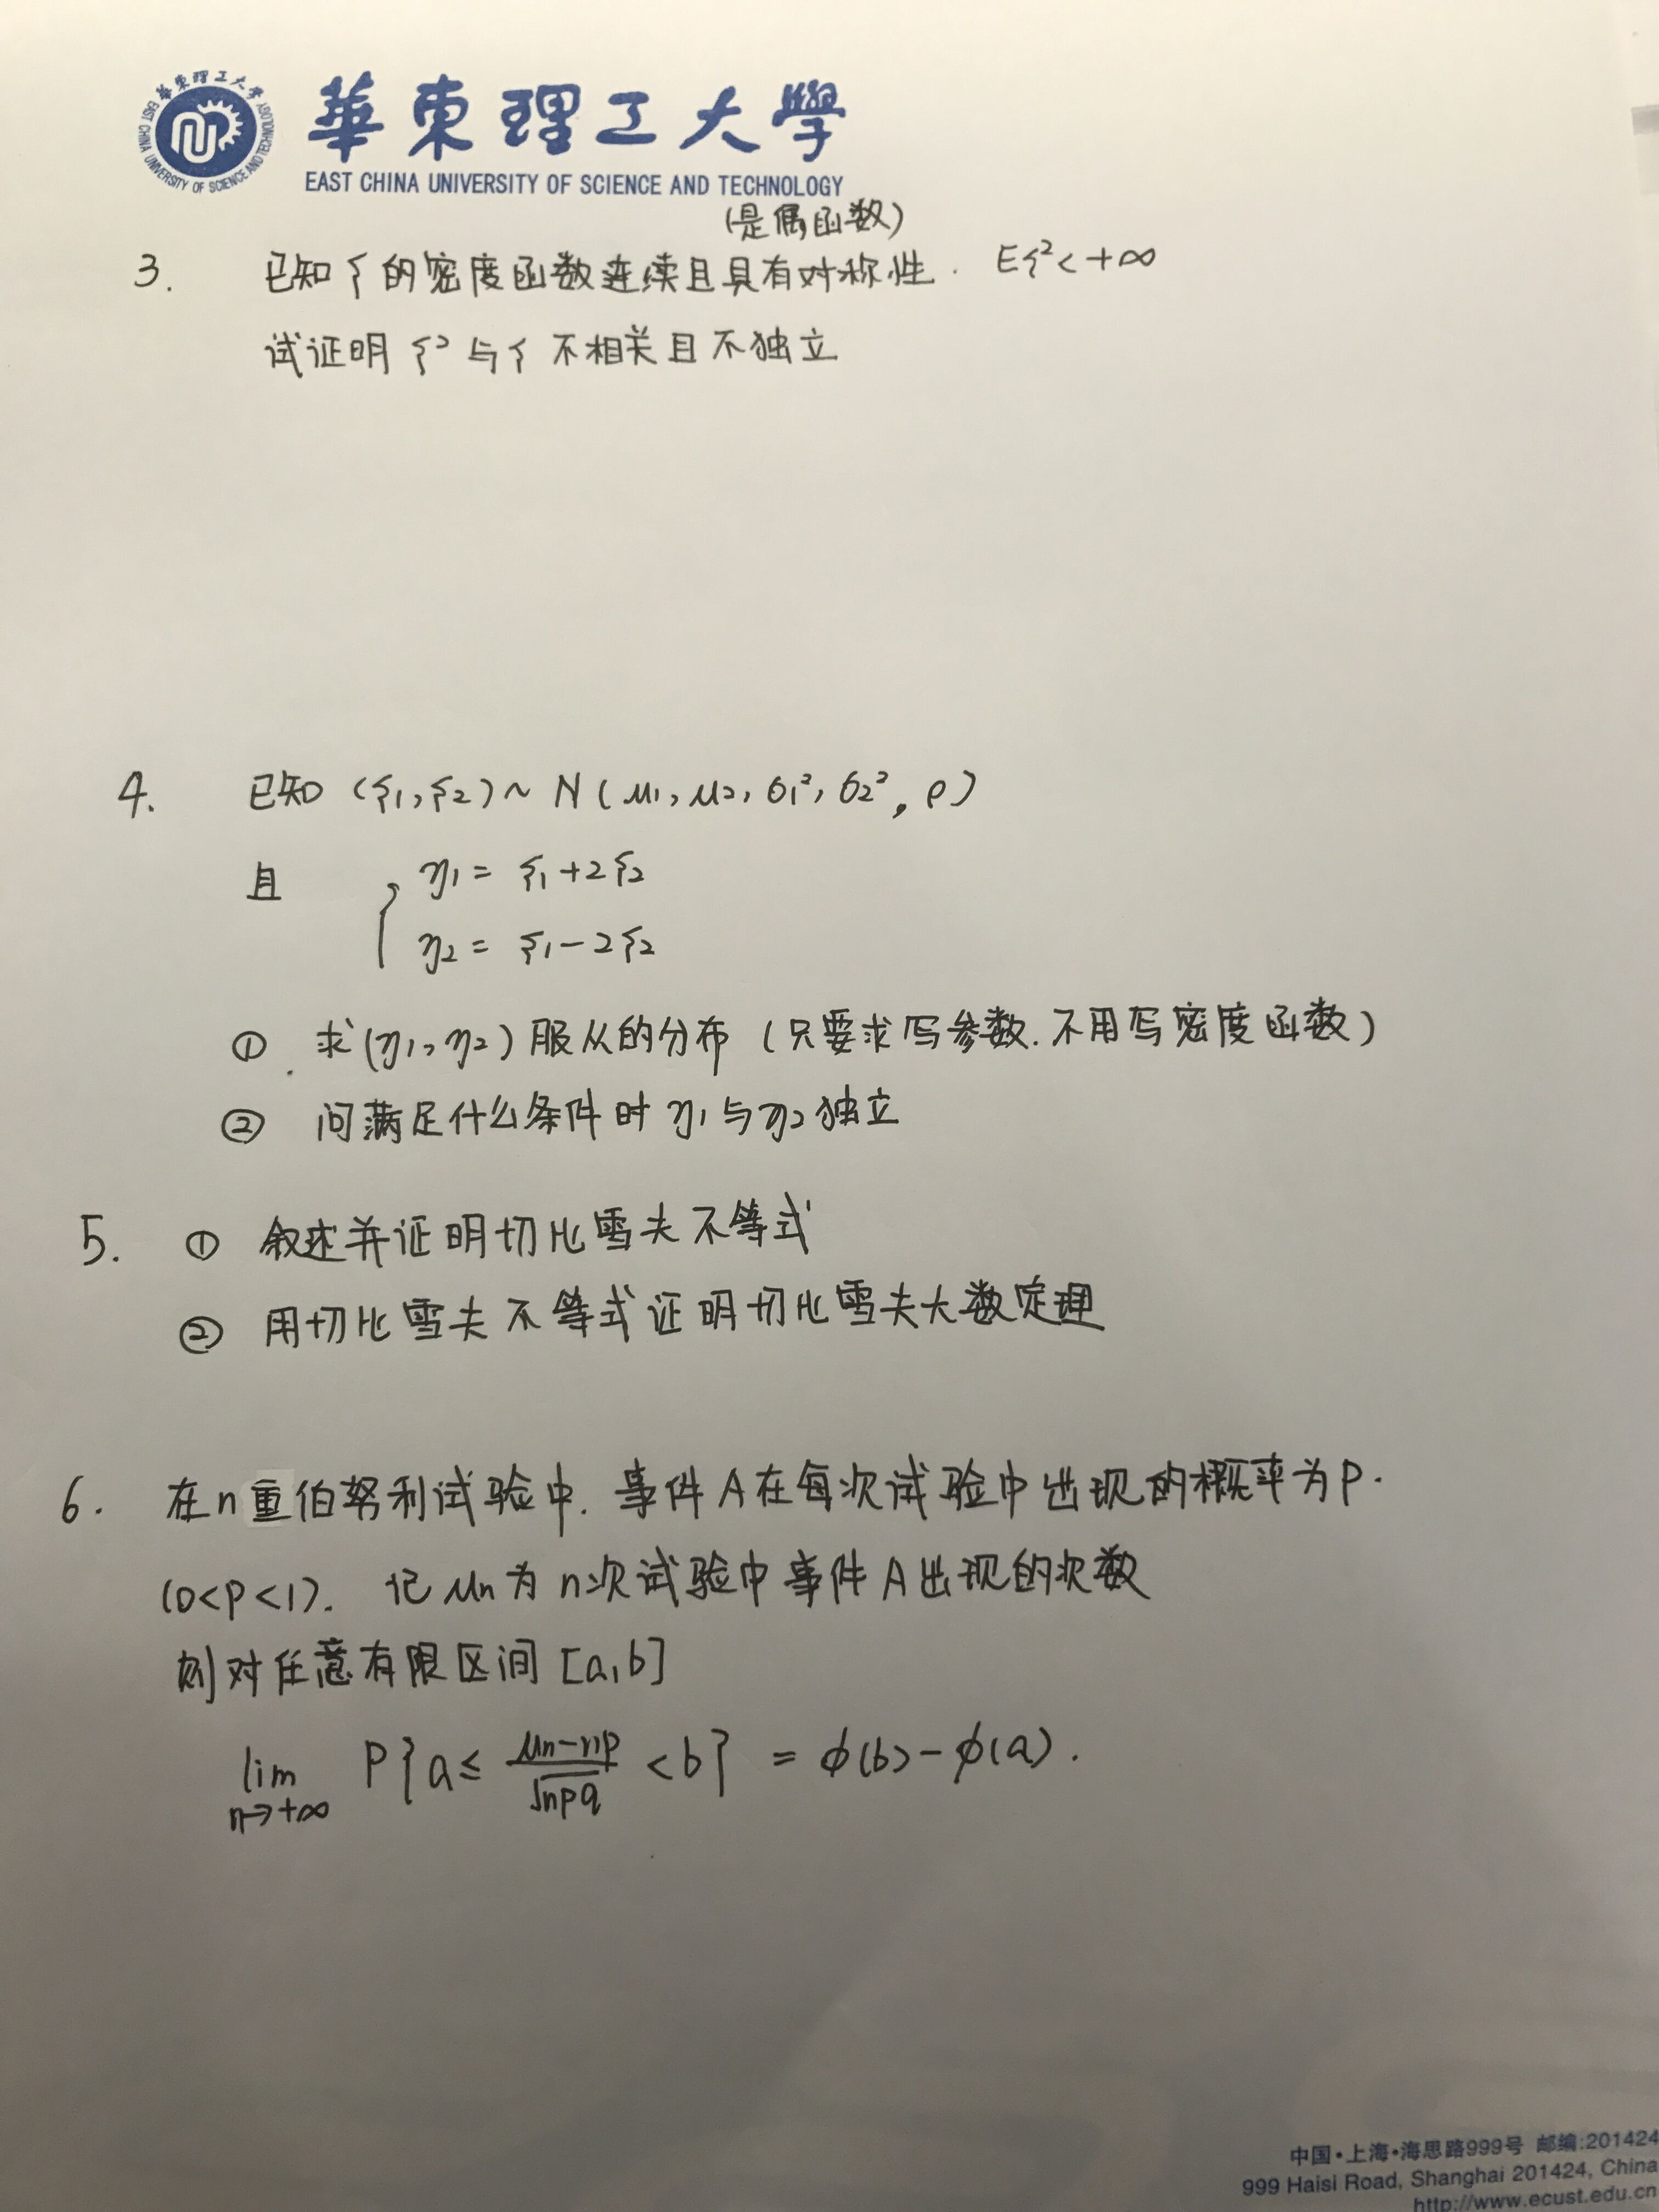 華東理工大學
EAST CHINA UNIVERSITY OF SCIENCE AND TECHNOLOGY
(是偶函数)
3. 已知 ξ 的密度函数连续且具有对称性. Eξ²<+∞
试证明 ξ² 与 ξ 不相关且不独立
4. 已知 (ξ1, ξ2) ~ N (μ1, μ2, σ1², σ2², ρ)
且 { η1 = ξ1+2ξ2
η2 = ξ1-2ξ2
① 求(η1, η2) 服从的分布 (只要求写参数. 不用写密度函数)
② 问满足什么条件时 η1 与 η2 独立
5. ① 叙述并证明切比雪夫不等式
② 用切比雪夫不等式证明切比雪夫大数定理
6. 在n重伯努利试验中. 事件 A 在每次试验中出现的概率为 p.
(0<p<1). 记 μn 为 n次试验中事件 A 出现的次数
则对任意有限区间 [a,b]
lim n→+∞ P{a≤ (μn-np)/√npq <b} = φ(b)-φ(a).
中国·上海·海思路999号 邮编:201424
999 Haisi Road, Shanghai 201424, China
http://www.ecust.edu.cn